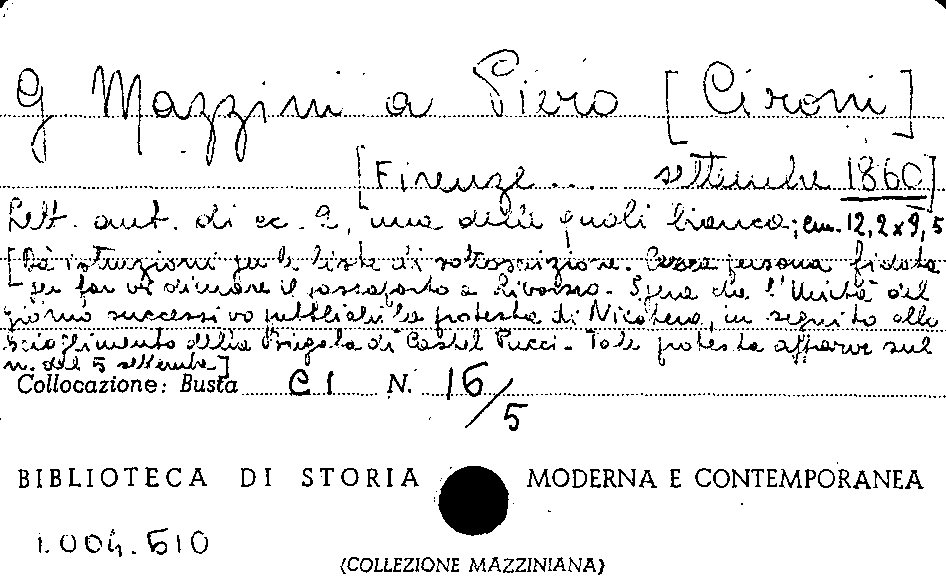 G Mazzini a Piero [Cironi]
[Firenze ... settembre 1860]
Lett. aut. di cc. 2, una delle quali bianca; cm. 12,2 x 9,5
[Dà istruzioni per le liste di sottoscrizione. Cerca persona fidata
per far vidimare il passaporto a Livorno. Spera che l'Unità del
giorno successivo pubblichi la protesta di Nicotera, in seguito allo
scioglimento della Brigata di Castel Pucci. Tale protesta apparve sul
n. del 5 settembre]
Collocazione: Busta C I N. 16/5
BIBLIOTECA DI STORIA MODERNA E CONTEMPORANEA
1.004.510
(COLLEZIONE MAZZINIANA)